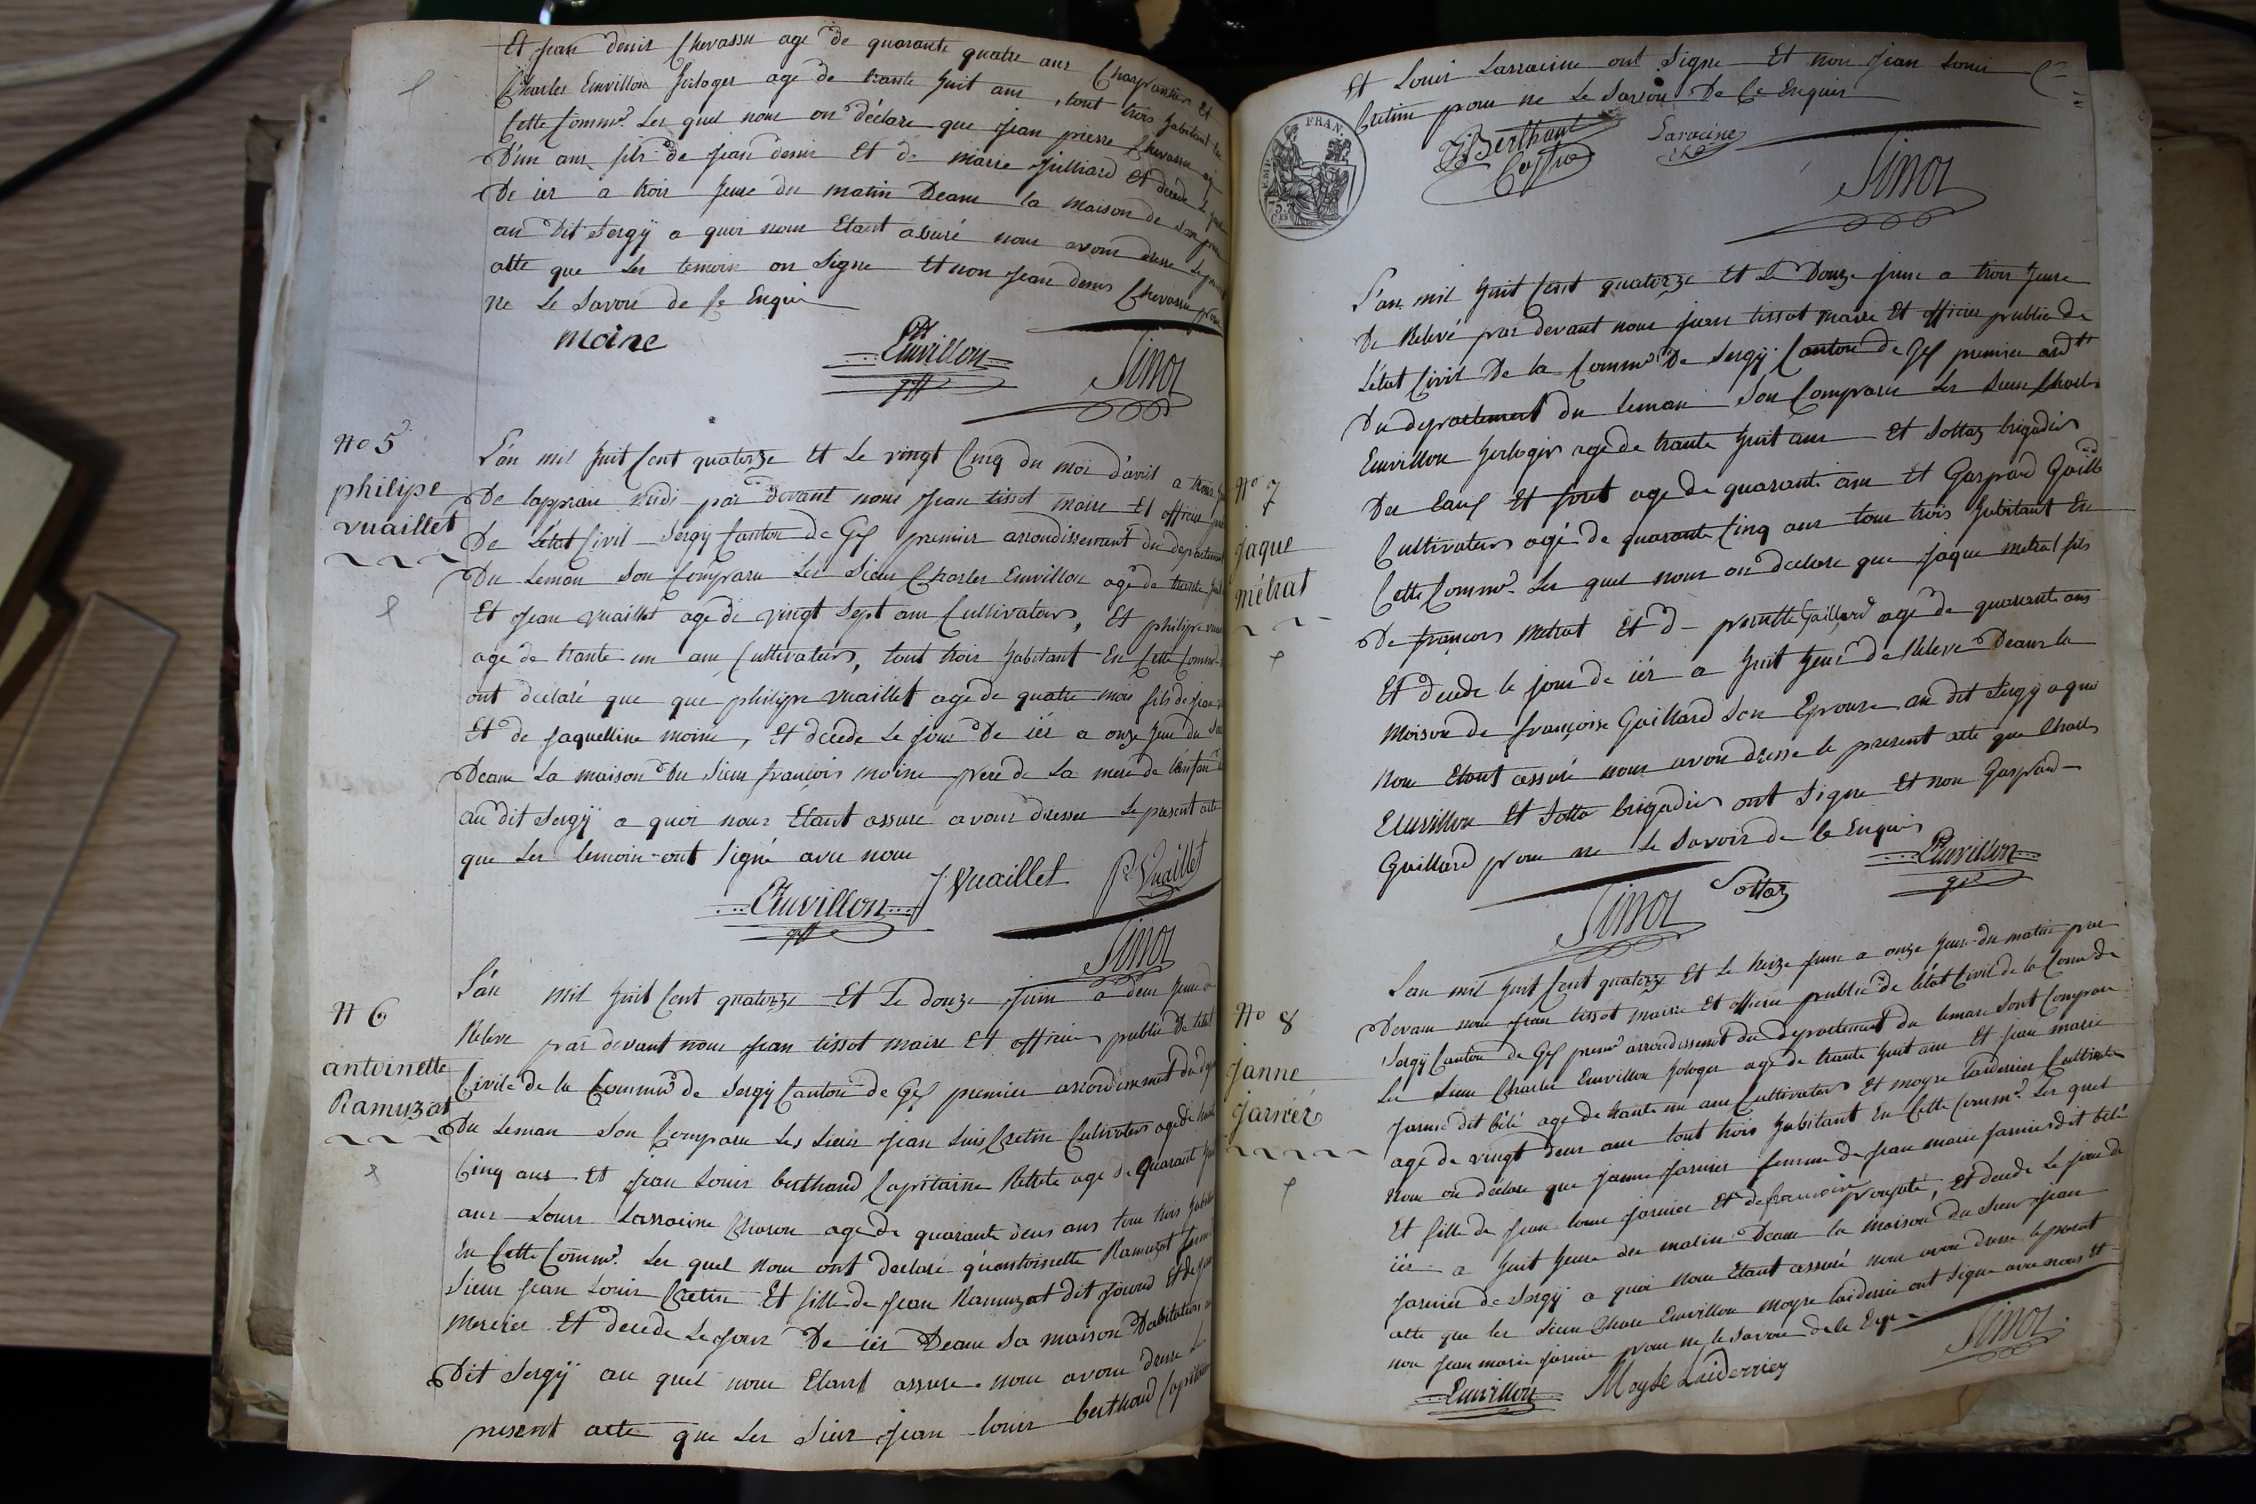 Et jean denis Chevassu age de quarante quatre ans Charpantier Et
Charles Emvillon horloger age de trante huit ans, tout trois habitant En
Cette Commu. Les quel nous on déclare que jean pierre Chevassu
D'un ans fils de jean denis Et de marie julliard Et décédé Le jour
De ier a trois heure du matin Deans la maison de son père
au Dit Sergÿ a quoi nous Etant assuré nous avons dresse Le present
atte que Les temoin on Signe Et non jean denis Chevassu pour
ne Le Savoir de Ce Enqui
moine
Emvillon
Tissot
No 5
philipe
vuaillet
L'an mil huit Cent quatorze Et Le vingt Cinq du moi d'avril a
De lapprau midi par devant nous jean tissot maire Et officier
De L'état Civil Sergÿ Canton de Gex premier arrondissement du departement
Du Leman Son Comparu Les Sieur Charles Emvillon age de trante huit
Et jean vuaillet age de vingt Sept ans Cultivateur, Et philipe
age de trante un ans Cultivateur, tout trois habitant En Cette Commu
ont déclaré que que philipe vuaillet age de quatre moi fils de jean
Et de jaquelline moine, Et décédé Le jour De ier a onze heure du
Deans La maison Du Sieur françois moine pere de La mere de L'enfan
au dit Sergÿ a quoi nous Etant assure avons dresser Le present atte
que Les temoin ont Signé avec nous
Emvillon
J Vuaillet
P Vuaillet
Tissot
N 6
antoinette
Ramuzat
L'an mil huit Cent quatorze Et Le douze juin a deux heure
Releve par devant nous jean tissot maire Et officier public De l'etat
Civile de la Commu de Sergÿ Canton de Gex premier arrondissement du
Du Leman Son Comparu Les Sieur jean Luis Cretin Cultivateur age de
Cinq ans Et jean Louis berthaud Capitaine Retrete age de quarant
ans Louis Larracine Charon age de quarante deux ans tous trois habitant
En Cette Commu. Les quel nous ont declaré qu'antoinette Ramuzat
Sieur jean Louis Cretin Et fille de jean Ramuzat dit
mercier Et decede Le jour De ier Deans Sa maison Dabitation
Dit Sergÿ au quel nous Etant assure nous avons dresse Le
present atte que Les Sieur jean louis berthaud Capitaine
Et Louis Larracine ont Signe Et non jean Louis
Cretin pour ne Le Savoir De Ce Enquis
FRAN.
Berthaut
Larracine
Tissot
No 7
jaque
métrat
L'an mil huit Cent quatorze Et Le Douze juin a trois heure
De Relevé par devant nous jean tissot maire Et officier public de
L'état Civil De la Commu De Sergÿ Canton de Gex premier ardt
Du departement du leman Son Comparu Les Sieur Charles
Emvillon horloger age de trante huit ans Et Sottaz brigadier
Des Eaux Et foret age de quarante ans Et Gaspard Gaillard
Cultivateur agé de quarante Cinq ans tous trois habitant En
Cette Commu. Les quel nous on declare que jaque metrat fils
De françois Metrat Et d pernette Gaillard age de quarante ans
Et décédé le jour de ier a huit heur de Releve Deans la
Moison de françoise Gaillard Son Epouse au dit Sergÿ a quoi
Nous Etant assuré nous avon dresse le present atte que Charles
Emvillon Et Sotta brigadier ont Signe Et non Gaspard
Gaillard pour ne Le Savoir de Ce Enquis
Tissot
Sottaz
Emvillon
No 8
janne
jarnier
L'an mil huit Cent quatorze Et Le treize juin a onze heure du matin par
Devans nous jean tissot maire Et officier public de L'état Civil de la Comu de
Sergÿ Canton de Gex premr arrondissement du departement du leman Sont Comparu
Les Sieur Charles Emvillon horloger age de trante huit ans Et jean marie
jarnier dit bélé age de trante un ans Cultivateur Et moyse laiderrier Cultivateur
age de vingt deux ans tout trois habitant En Cette Commu. Les quel
nous on déclare que janne jarnier femme de jean marie jarnier dit bélé
Et fille de jean louis jarnier Et de francoise, Et decede Le jour de
ier a huit heure du matin Deans la maison du Sieur jean
jarnier de Sergÿ a quoi nous Etant assuré nous avon dresse le present
atte que les Sieur Charles Emvillon moyse laiderrier ont Signe avec nous Et
non jean marie jarnier pour ne le Savoir de Ce Enqui
Emvillon
Moyse Laiderrier
Tissot